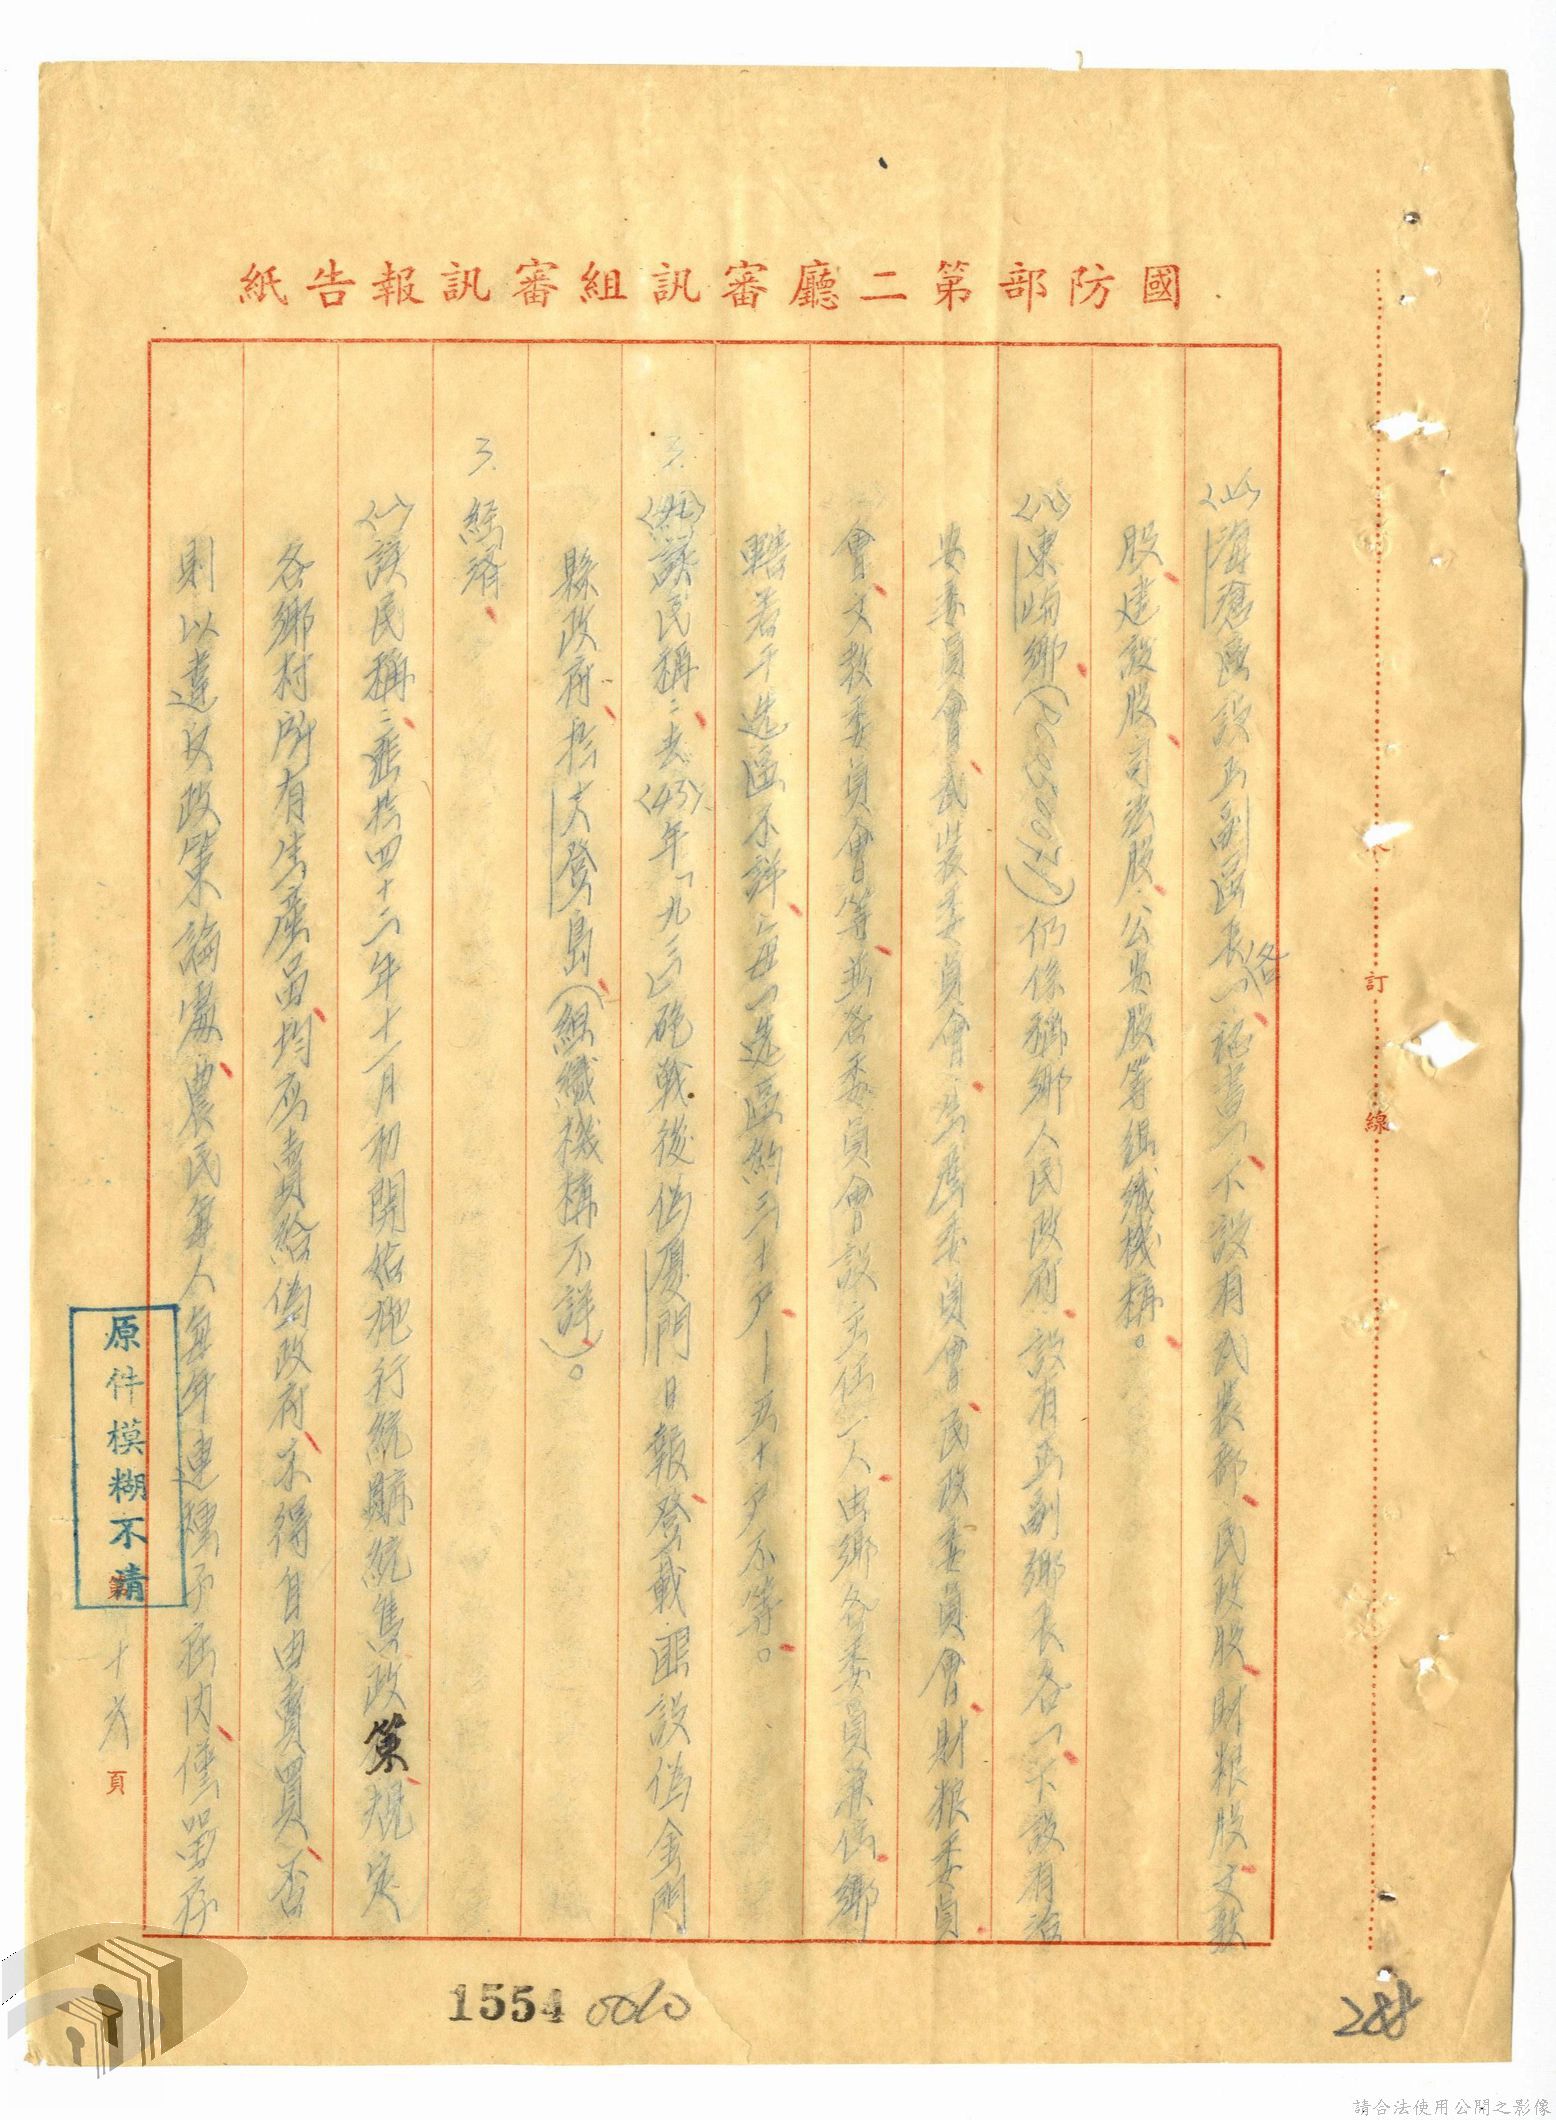 國防部第二廳審訊組審訊報告紙
海滄區設正副區長各一秘書一下設有武裝部民政股財粮股文教
股建設股司法股公安股等組織機構。
東嶼鄉仍係稱鄉人民政府設有正副鄉長各一下設有治
安委員會武裝委員會生產委員會民政委員會財粮委員
會文教委員會等並各委員會設主任一人由鄉各委員兼任鄉
轄若干选區不詳每一选區約三十户—五十户不等。
該民稱：去〈43〉年「九三」砲戰後偽厦門日報登載匪設偽金門
縣政府於大登島（組織機構不詳）。
3. 經濟
〈一〉該民稱：匪於四十二年十一月初開始施行統購統售政策規定
各鄉村所有生產品均应賣給偽政府不得自由賣買否
則以違反政策論處農民每人每年連種子在內僅留存
第十 頁
原件模糊不清
訂
線
1554 0010
288
請合法使用公開之影像